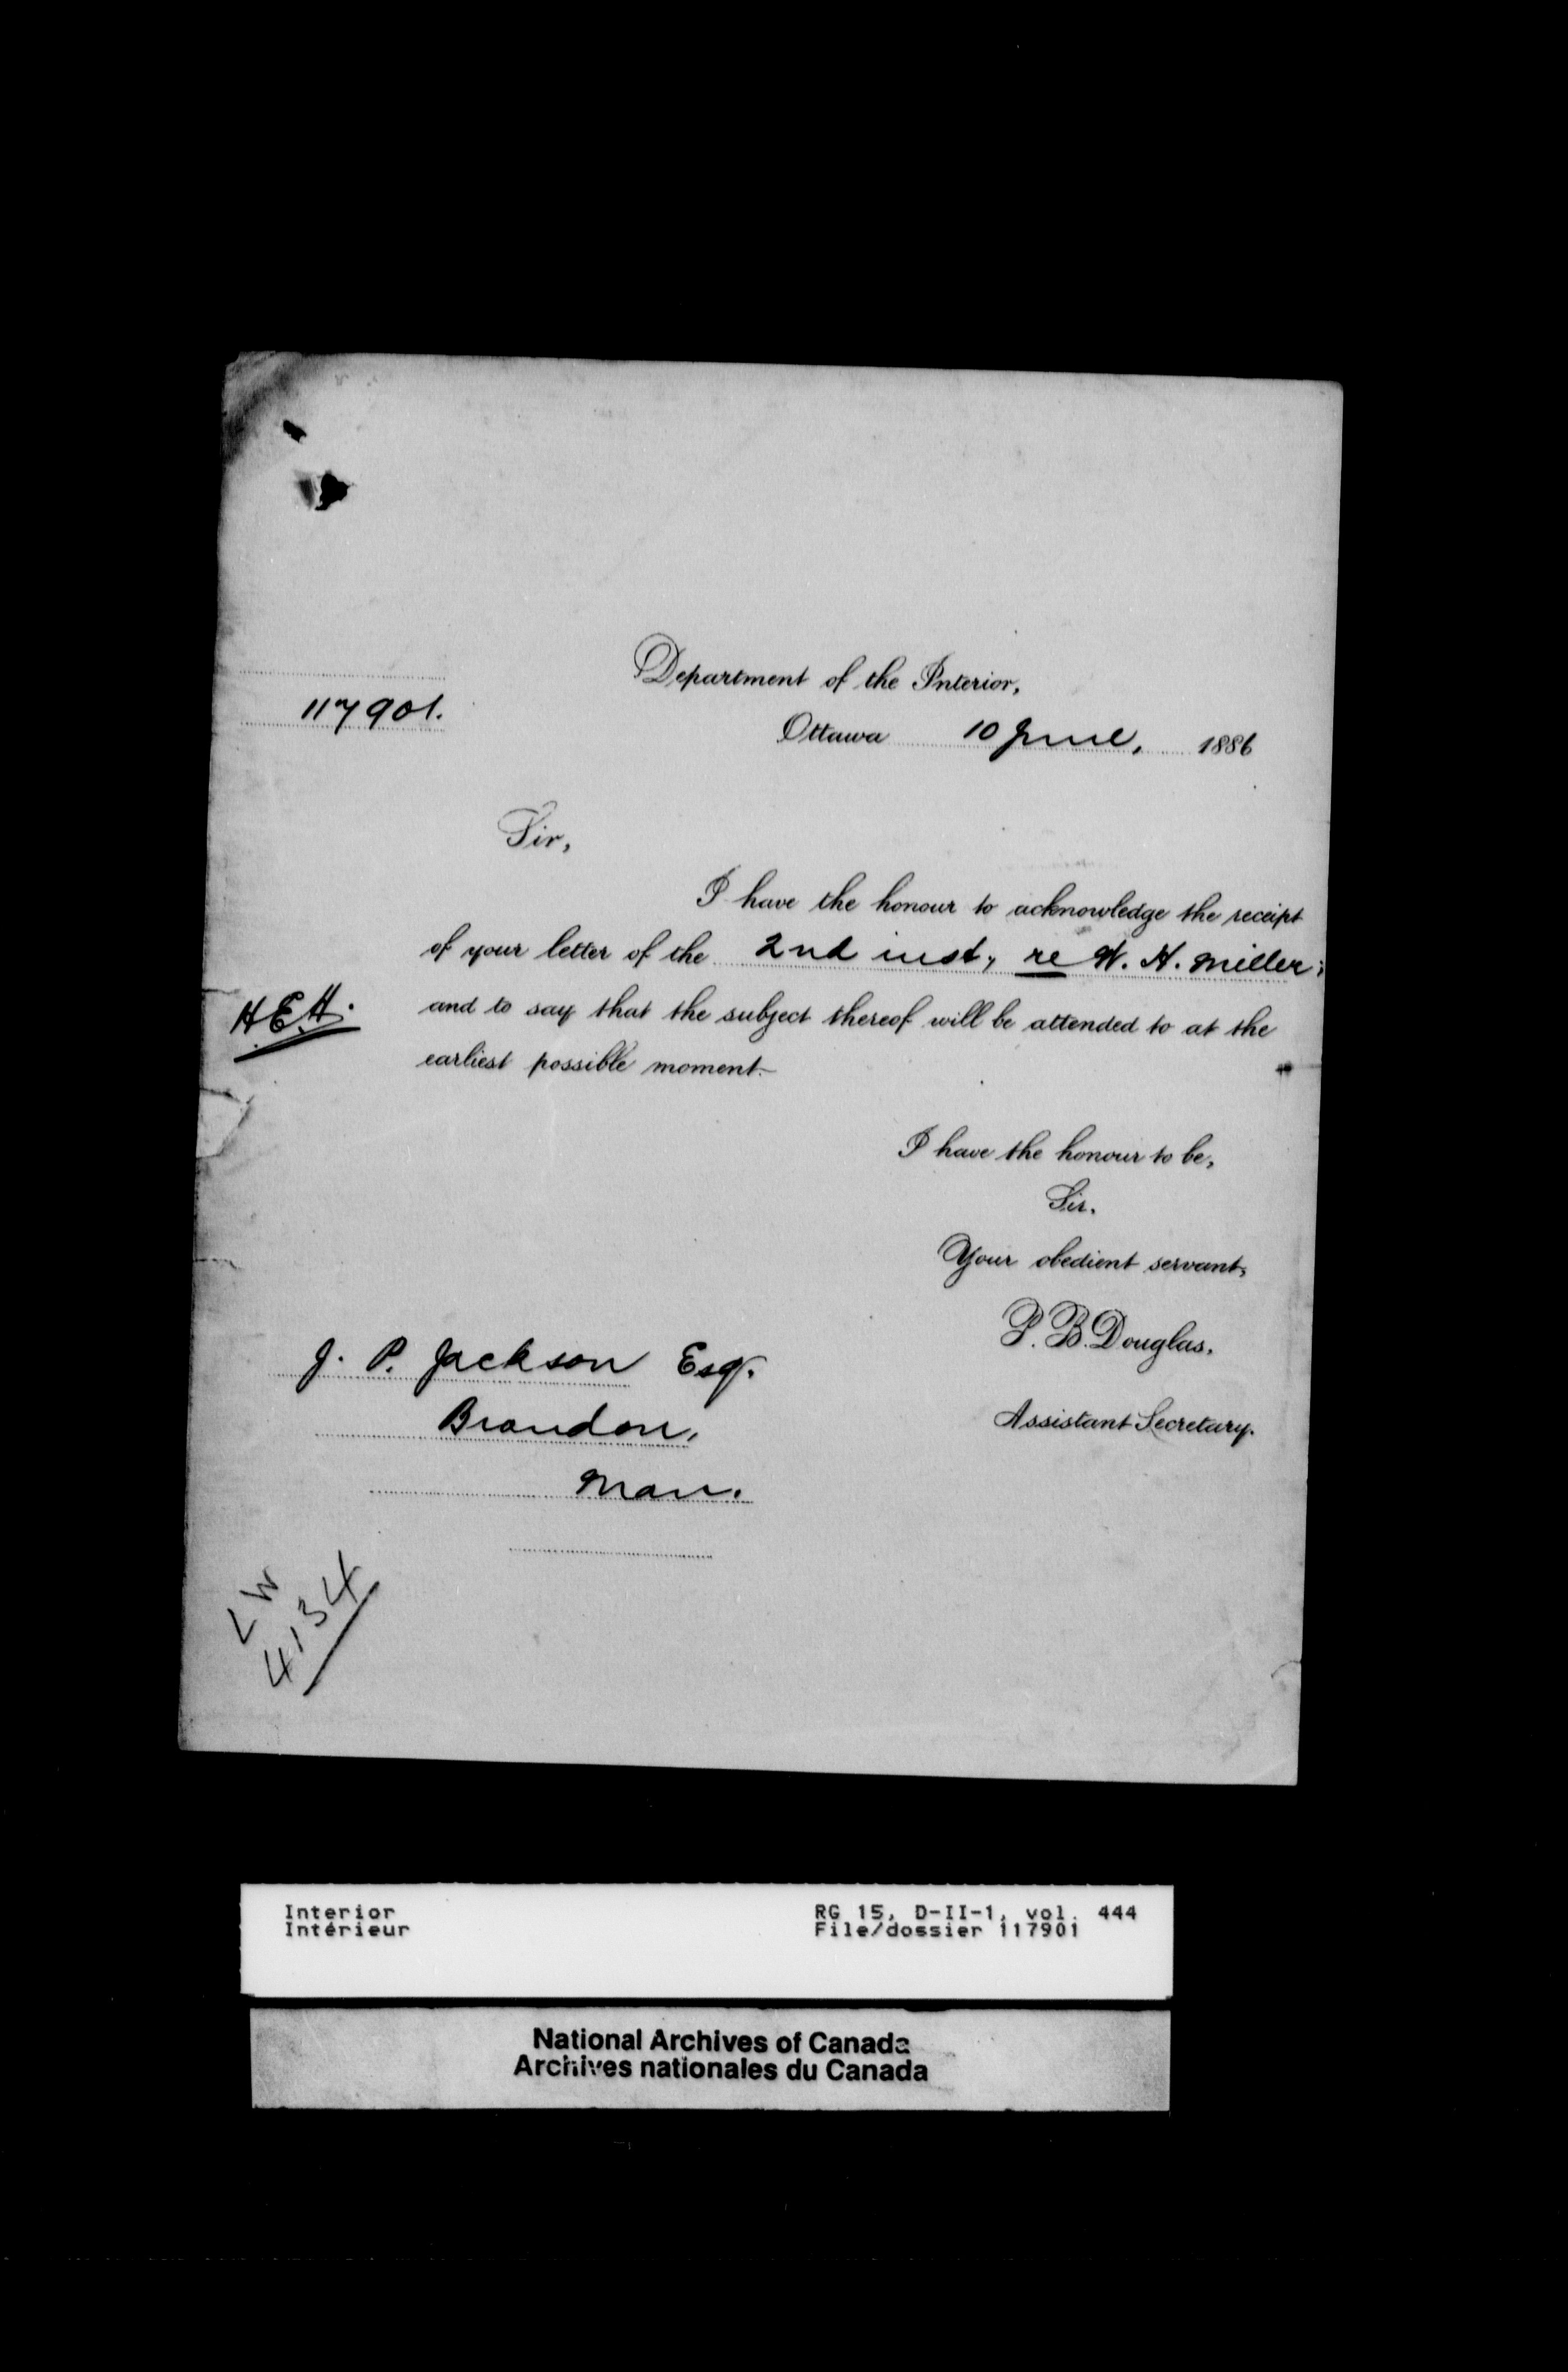 Department of the Interior,
117901.
Ottawa 10 June, 1886
Sir,
I have the honour to acknowledge the receipt
of your letter of the 2nd inst, re W. H. Miller;
H.E.H.
and to say that the subject thereof will be attended to at the
earliest possible moment.
I have the honour to be,
Sir.
Your obedient servant,
P. B. Douglas.
Assistant Secretary.
J. P. Jackson Esq.
Brandon,
Man.
LW
4134
Interior
Intérieur
RG 15, D-II-1, vol. 444
File/dossier 117901
National Archives of Canada
Archives nationales du Canada